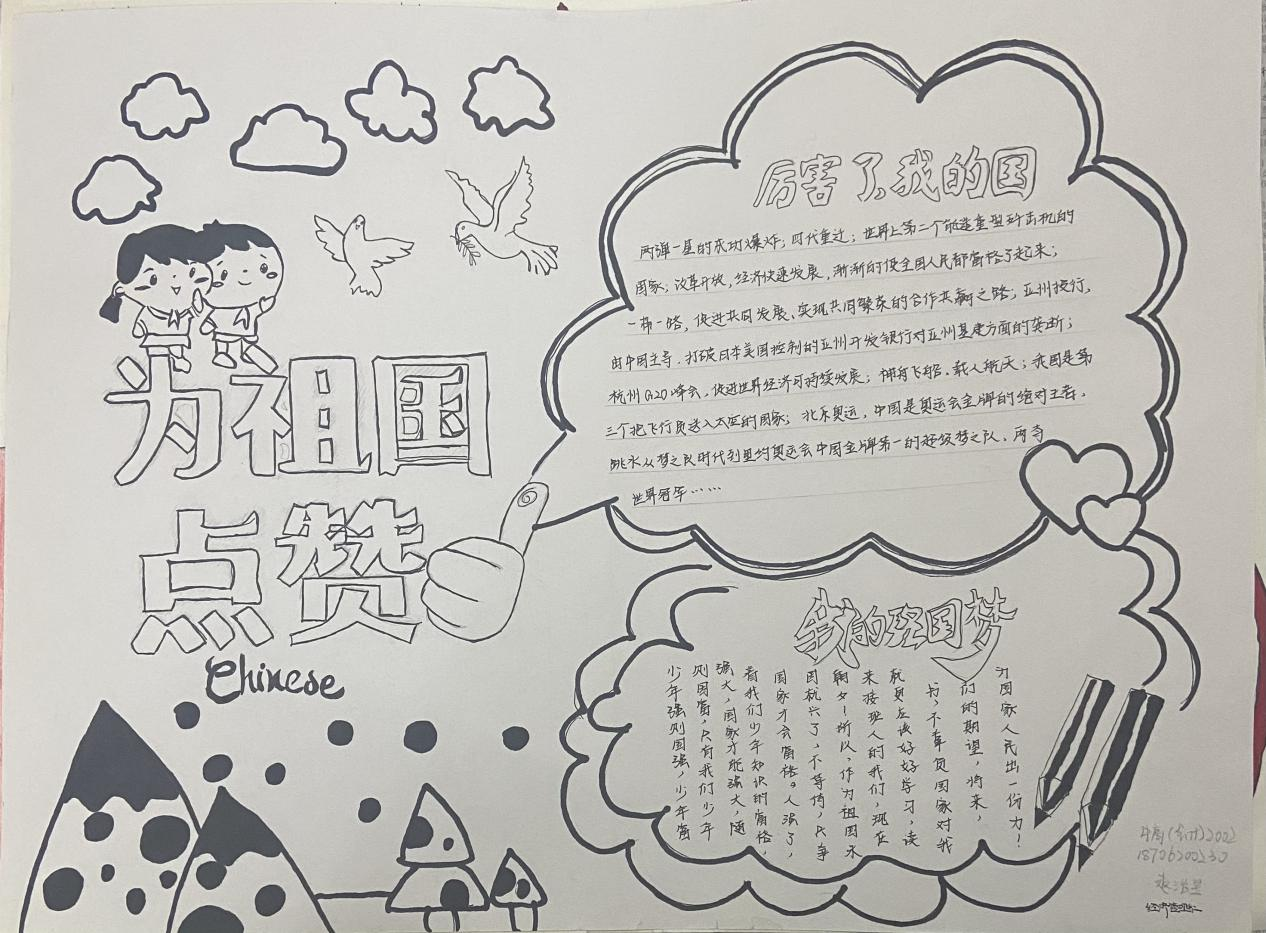 为祖国
点赞
Chinese
厉害了，我的国
两弹一星的成功爆炸；四代重过；世界上第二个能造重型歼击机的
国家；改革开放，经济快速发展，渐渐的使全国人民都富裕了起来；
一带一路，促进共同发展、实现共同繁荣的合作共赢之路；亚洲投行，
由中国主导．打破日本美国控制的亚洲开发银行对亚洲基建方面的垄断；
杭州G20峰会，促进世界经济可持续发展；神舟飞船．载人航天；我国是第
三个把飞行员送入太空的国家；北京奥运，中国是奥运会金牌的绝对王者．
跳水从梦之队时代到里约奥运会中国金牌第一的超级梦之队．两夺
世界冠军……
我的强国梦
少年强则国强，少年富
则国富，只有我们少年
强大，国家才能强大，随
着我们少年知识的富裕，
国家才会富裕。人强了，
国就兴了，不等待，只争
朝夕！所以，作为祖国未
来接班人的我们，现在
就更应该好好学习，读
书，不辜负国家对我
们的期望，将来，
为国家人民出一份力！
(会计)2002
18706200230